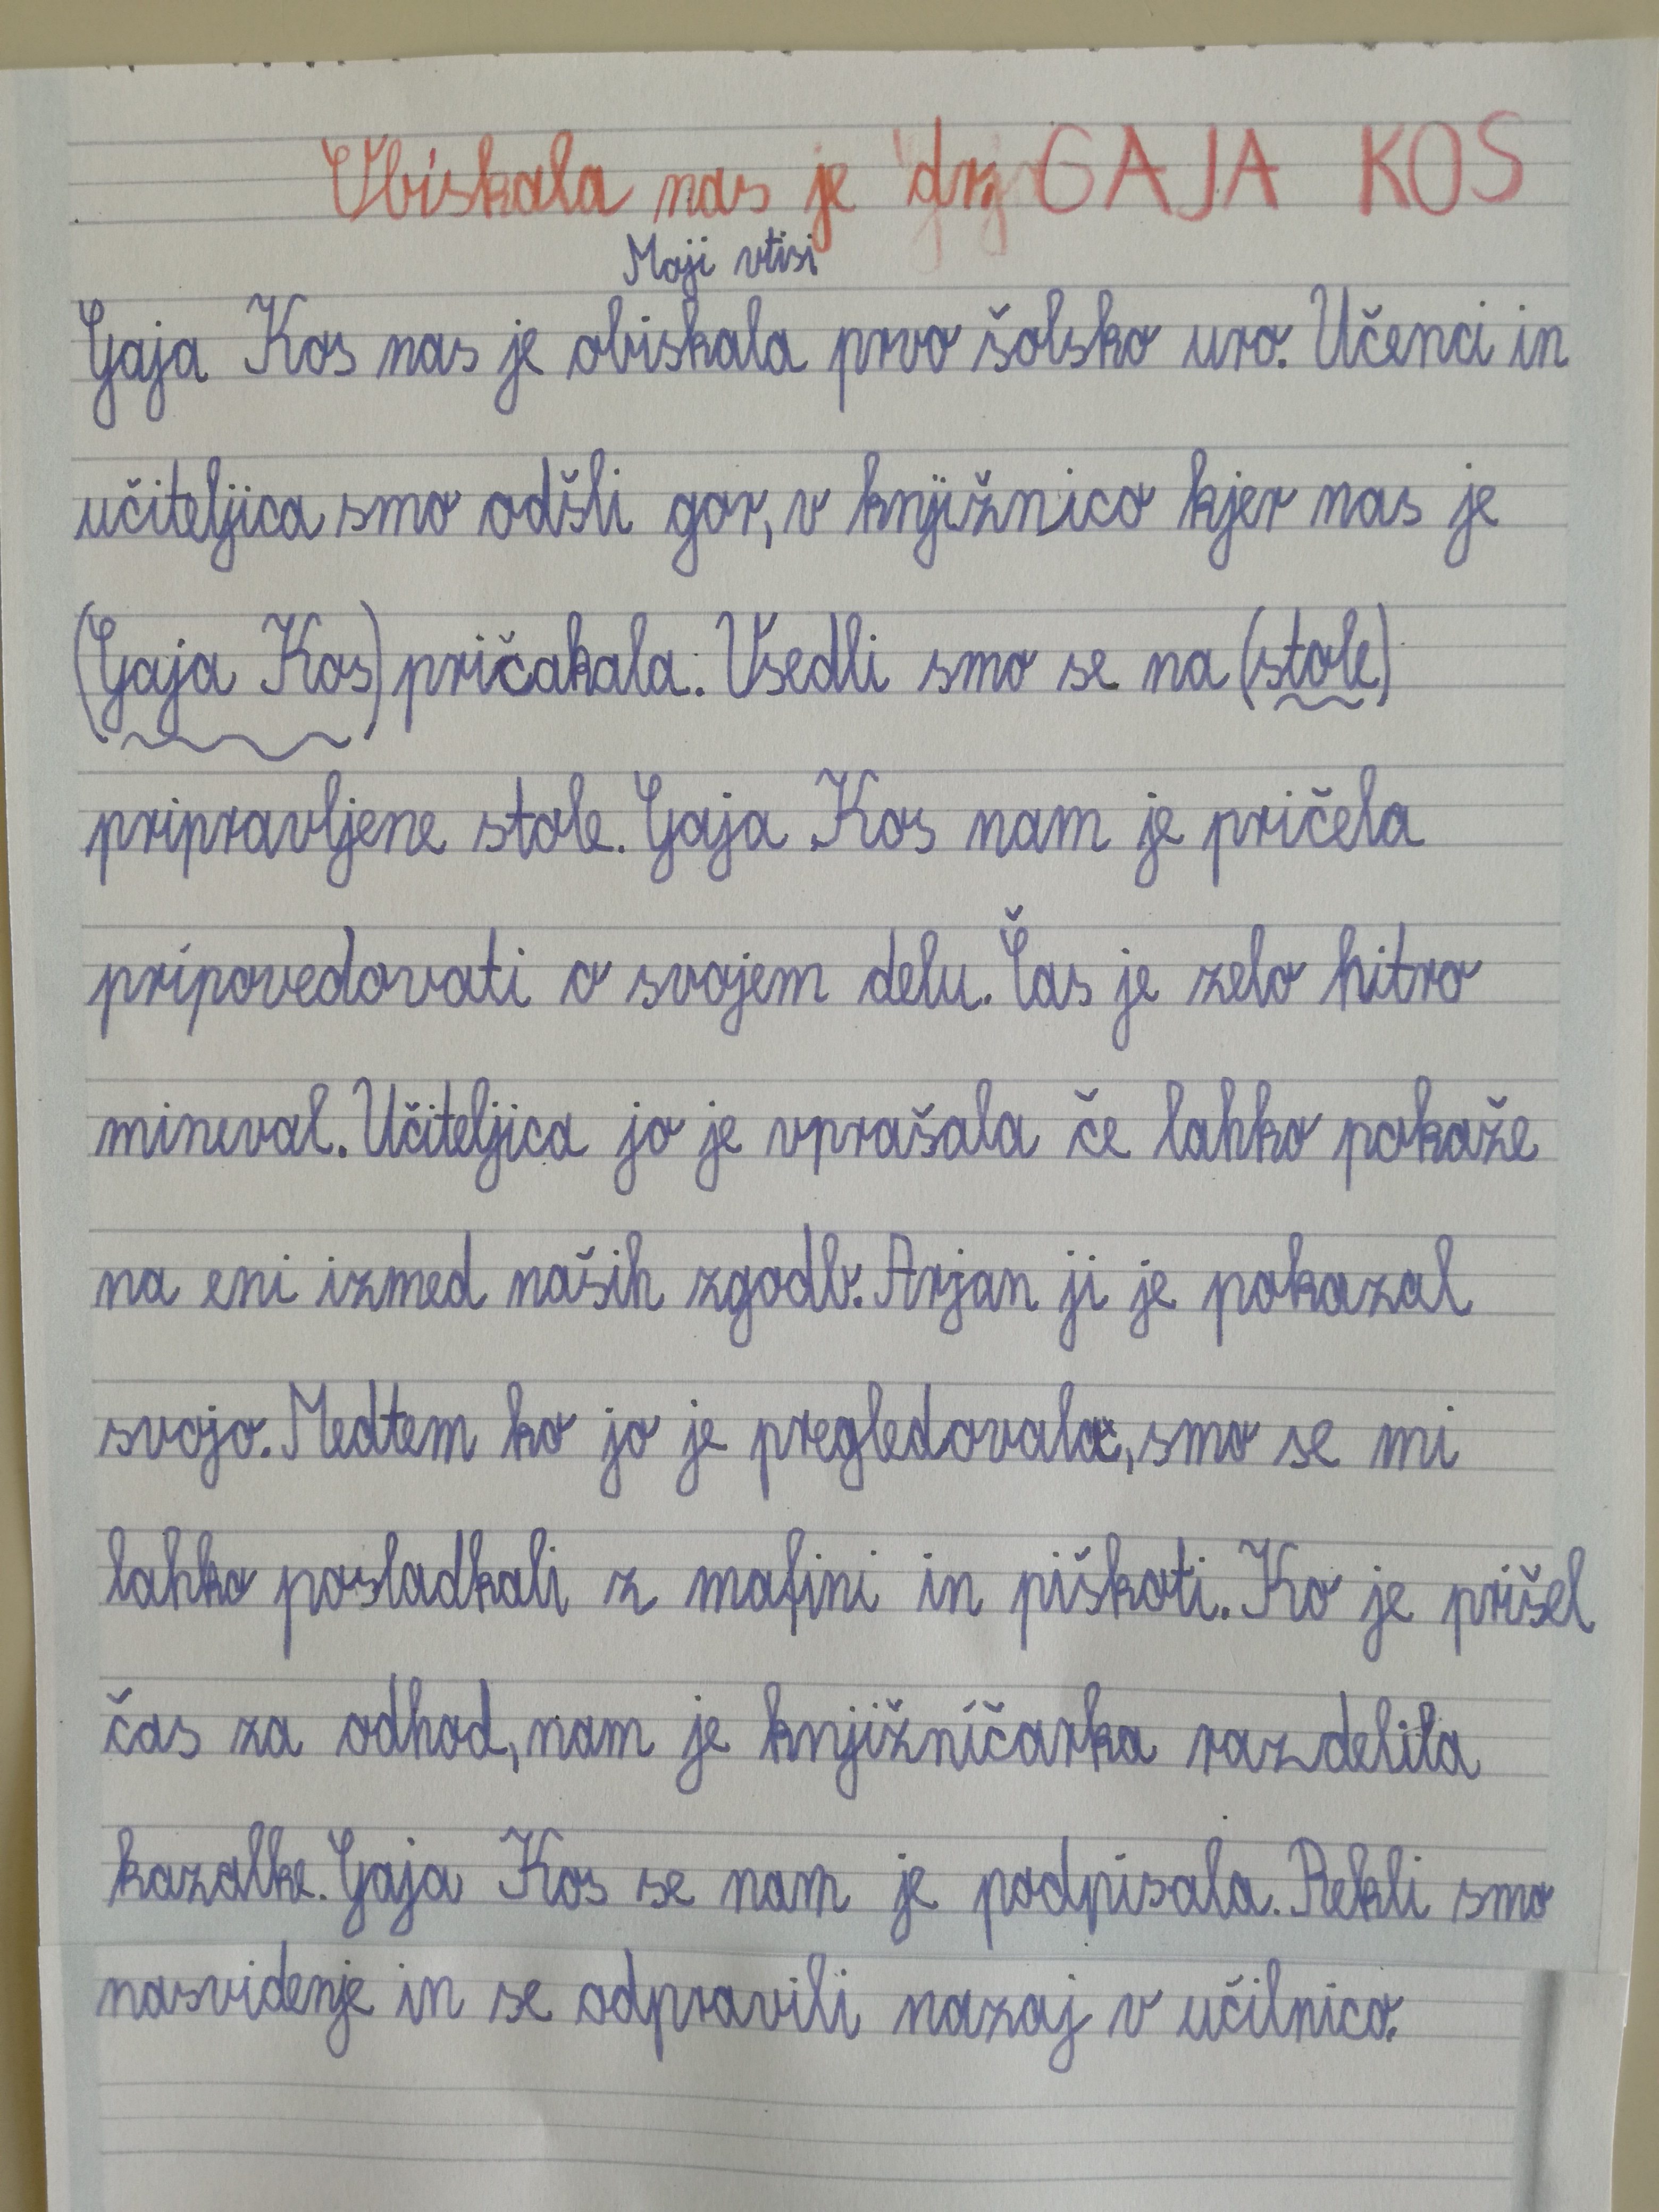 Obiskala nas je drj GAJA KOS
Moji vtisi
Gaja Kos nas je obiskala prvo šolsko uro. Učenci in
učiteljica smo odšli gor, v knjižnico kjer nas je
(Gaja Kos) pričakala. Vsedli smo se na (stole)
pripravljene stole. Gaja Kos nam je pričela
pripovedovati o svojem delu. Čas je zelo hitro
mineval. Učiteljica jo je vprašala če lahko pokaže
na eni izmed naših zgodb. Arjan ji je pokazal
svojo. Medtem ko jo je pregledovala, smo se mi
lahko posladkali z mafini in piškoti. Ko je prišel
čas za odhod, nam je knjižničarka razdelila
kazalke. Gaja Kos se nam je podpisala. Rekli smo
nasvidenje in se odpravili nazaj v učilnico.